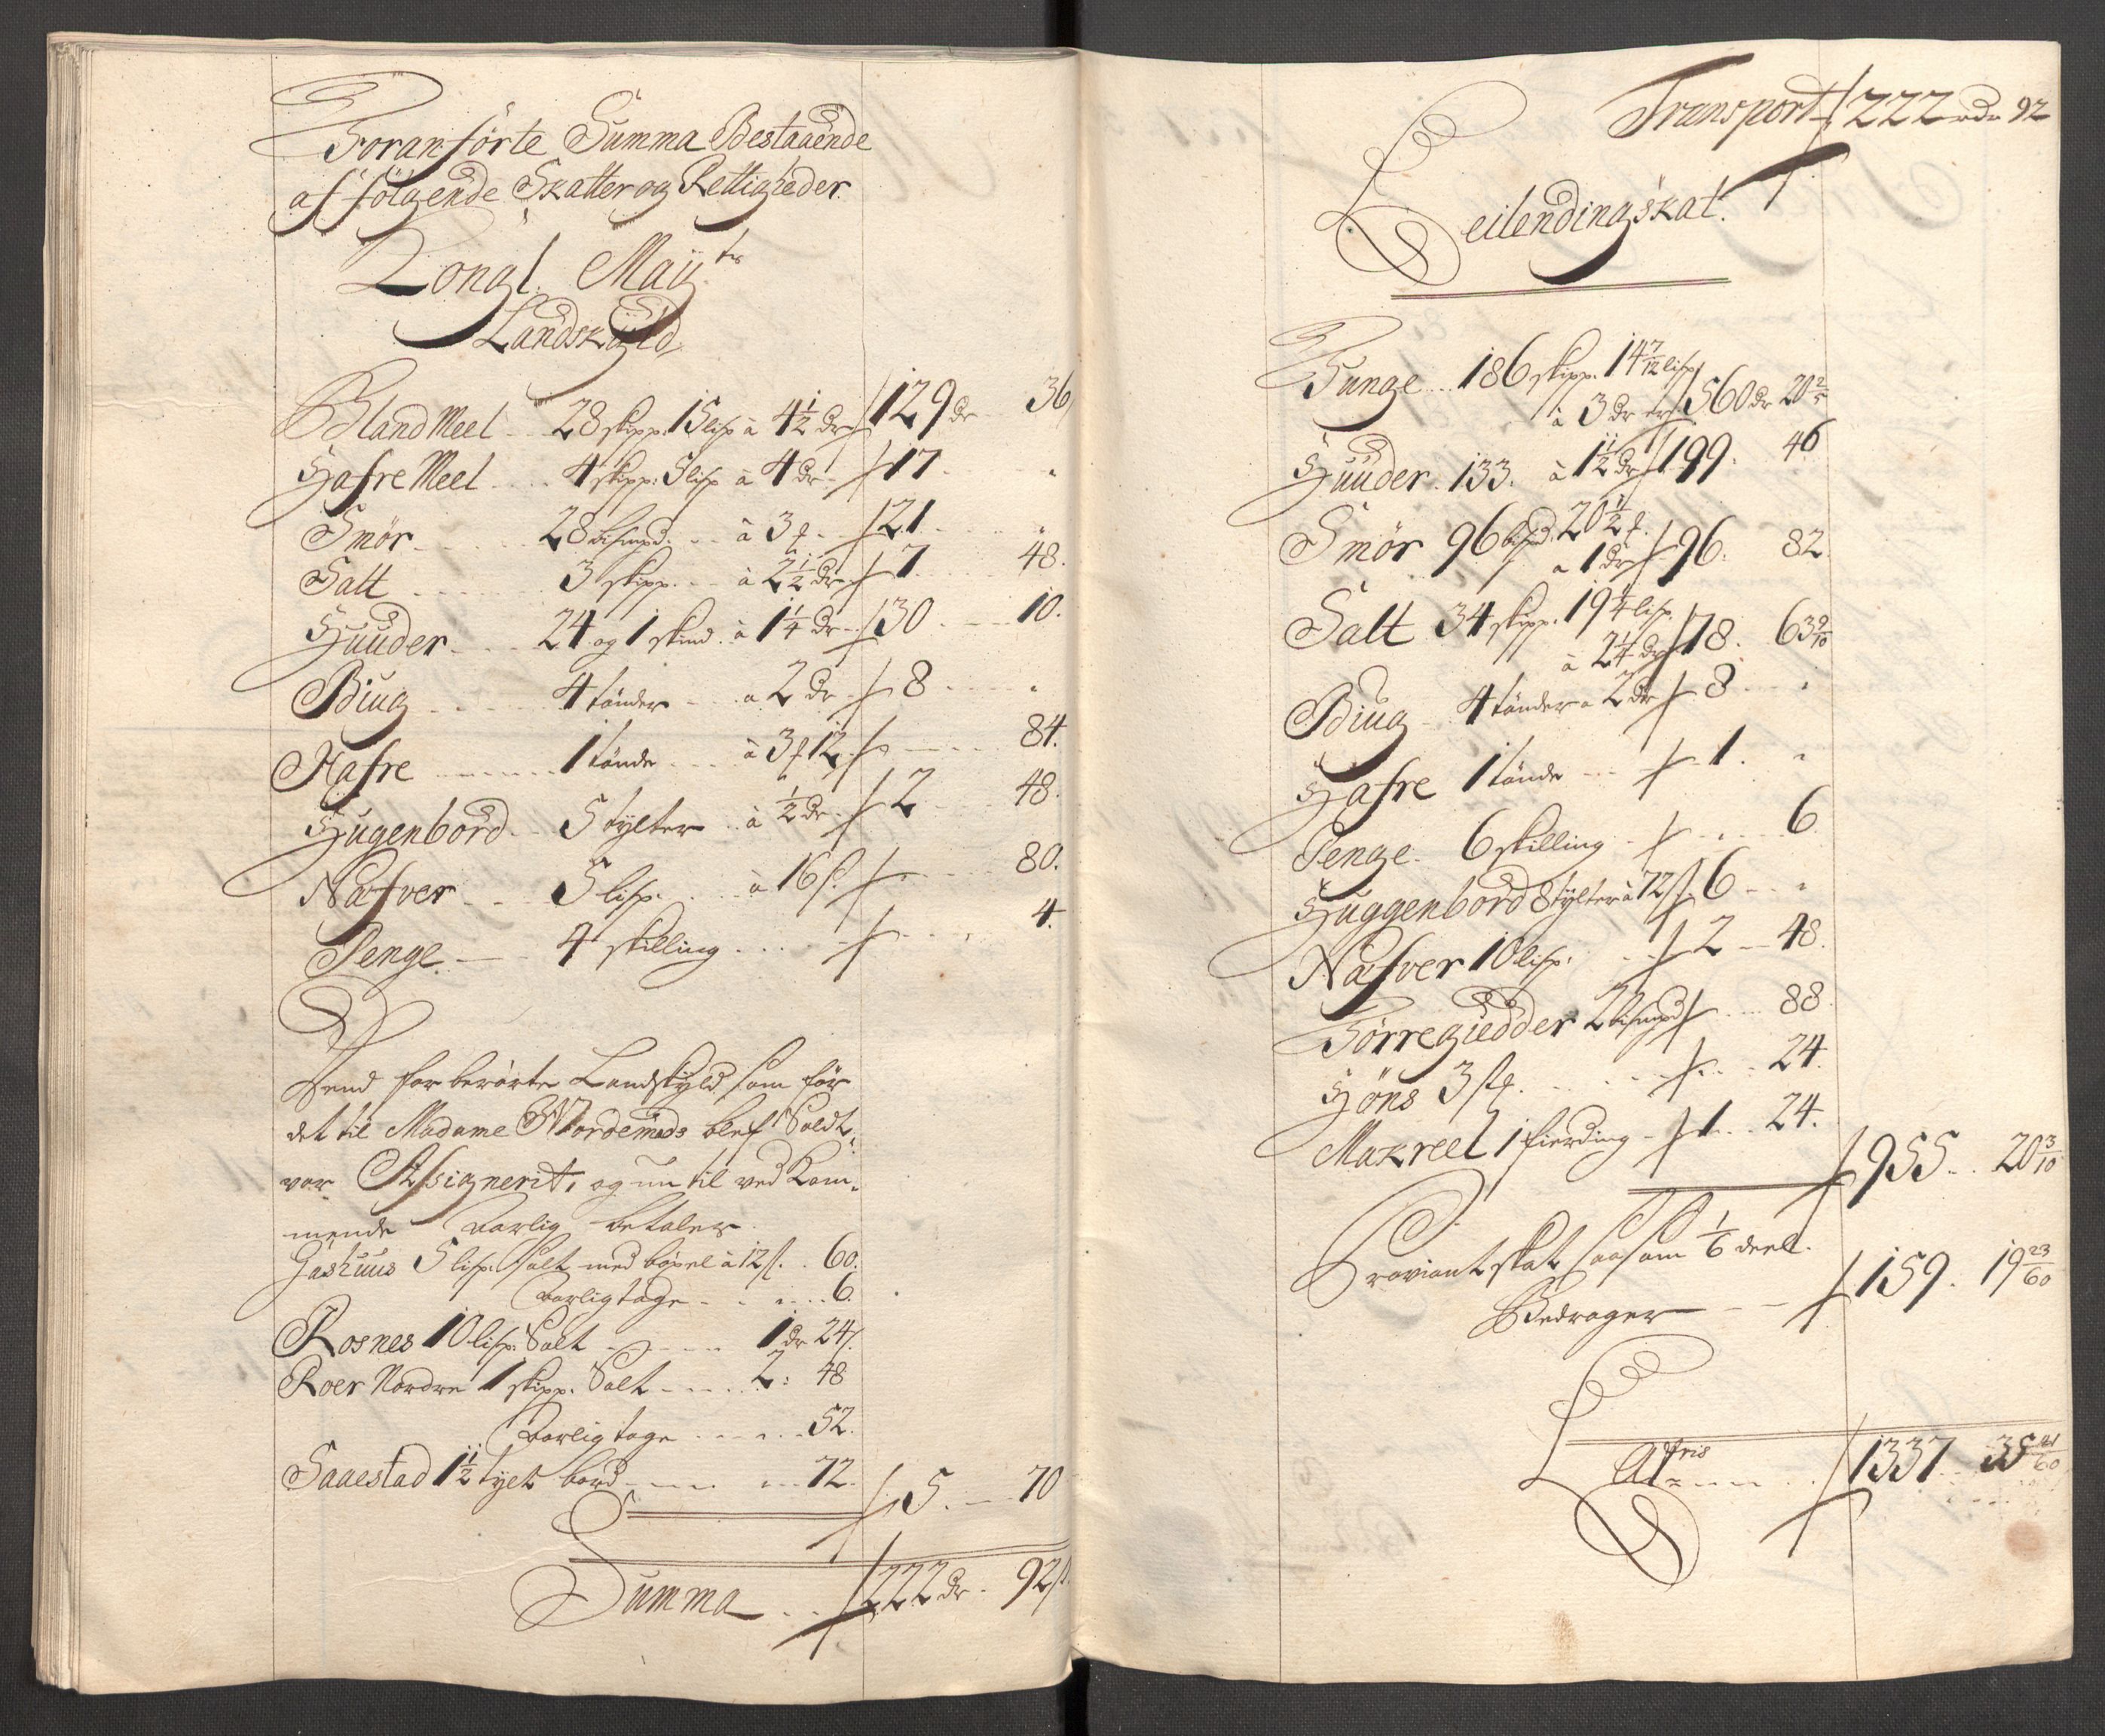 Foranførte Summa Bestaaende
af følgende Skatter og Rettigheder.
Kongl. May.ts
Landskÿld
Bland Meel 28 skipp: 15 lisp à 4½ dr 129 dr 36
Hafre Meel 4 skipp: 5 lisp à 4 dr 17.
Smør 28 bismpd. à 3 f 21.
Salt 3 skipp. à 2½ dr 7 48.
Huuder 24 og 1 skind à 1¼ dr 30 10.
Biug 4 tönder a 2 dr 8
Hafre 1 tönde à 3 f 12 84.
Hugenbord 5 tylter à ½ dr 2 48.
Nafver 5 lisp. à 16 s. 80.
Penge 4 skilling 4.
Dend forberørte Landskyld som før
det til Madame Wordemads blef Soldt,
var Assignerit, og nu til ved Kom-
mende aarlig betaler.
Gashuus 5 lisp. Salt med böxel à 12 s. 60.
aarlig tage 6.
Rosnes 10 lisp. Salt 1 dr 24.
Roer Nordre 1 skipp. Salt 2: 48
aarlig tage 52.
Saaestad 1½ tylt bord 72. 5. 70
Summa 222 dr. 92 s.
Transport 222 rdr 92
Leilendingskat.
Tunge 186 skipp. 14 7/12 lisp
à 3 dr er 560 dr 20 2/5
Huuder 133. à 1½ dr 199. 46
Smør 96 bispd. 20½ f.
a 1 dr 96. 82.
Salt 34 skipp. 19¼ lisp.
à 2¼ dr 78. 63 9/10
Biug 4 tönder a 2 dr 8
Hafre 1 tönde 1.
Penge 6 skilling 6.
Huggenbord 8 tylter à 72 s. 6
Nafver 10 lisp. 2 48.
Törregiedder 2 bismpd 88.
Höns 3 st. 24.
Makreel 1 fierding 1 24.
955. 20 3/10
Proviantskat saasom 1/6 deel.
Bedrager 159. 19 23/60
Latris 1337 35 41/60